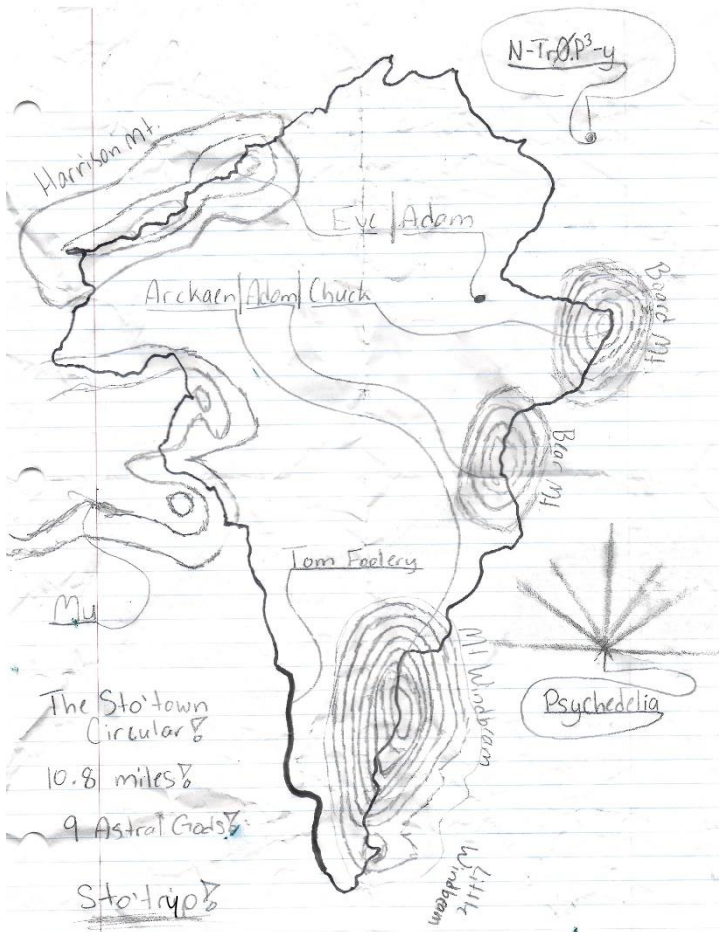 N-TrØ.P³-y
Harrison Mt.
Eve | Adam
Arckaen | Adam | Chuck
Board Mt
Bear Mt
Tom Foolery
Mu
Mt Windbeam
Psychedelia
The Sto'town
Circular!
10.8 miles!
9 Astral Gods!
Little
Windbeam
Sto'trip!